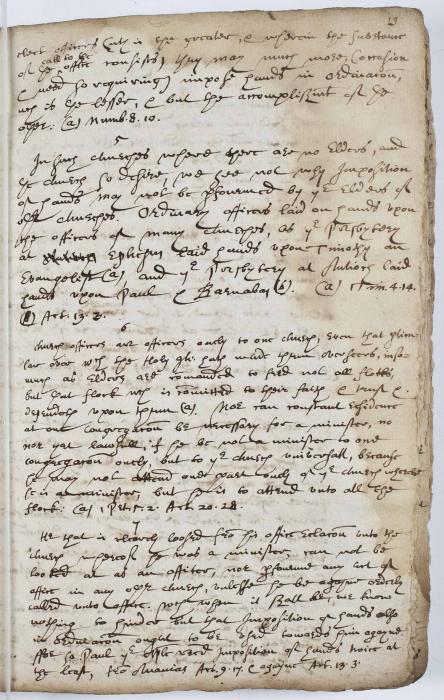 13
elect officers (wch is the greater, & wherein the substance
of the call to the office consists) they may much more, (occasion
& need so requiring) impose hands in ordinacon,
wch is the lesser, & but the accomplishmt of the
other: (a) Numb: 8. 10.
5
In such churches where there are no Elders, and
the church so desire, we see not why Imposition
of hands may not be pformed by the Elders of
other churches. Ordinary officers laid on hands upon
the officers of many churches, as ye Presbytery
at Ephesus laid hands upon Timothy an
Evangelist (a), and ye Presbytery at Antioch laid
hands upon Paul & Barnabas (b). (a) 1 Tim. 4. 14.
Act. 13. 3.
6
Church officers are officers onely to one church, even that
over wch the Holy gh: hath made them overseers, inso-
much as Elders are comanded to feed not all flocks,
but that flock wch is comitted to their faith & trust &
dependeth upon them (a). Nor can constant residence
at one congregacon be necessary for a minister, no
nor yet lawfull if he be not a minister to one
congregacon onely, but to ye church universall, because
he may not attend one part onely of ye church whereto
he is a minister, but he is to attend unto all the
flock: (a) 1 Pet: 5. 2. Act. 20. 28.
7
He that is clearly loosed fro his office relacon unto the
church whereof he was a minister, can not be
looked at as an officer, nor pforme any act of
office in any other church, unlesse he be againe orderly
called unto office. wch when it shall be, we know
nothing to hinder but that Imposition of hands also
in ordinacon ought to be used towards him againe
ffor so Paul ye received Imposition of hands twice at
the least, fro Ananias Act. 9. 17. & againe Act. 13. 3.